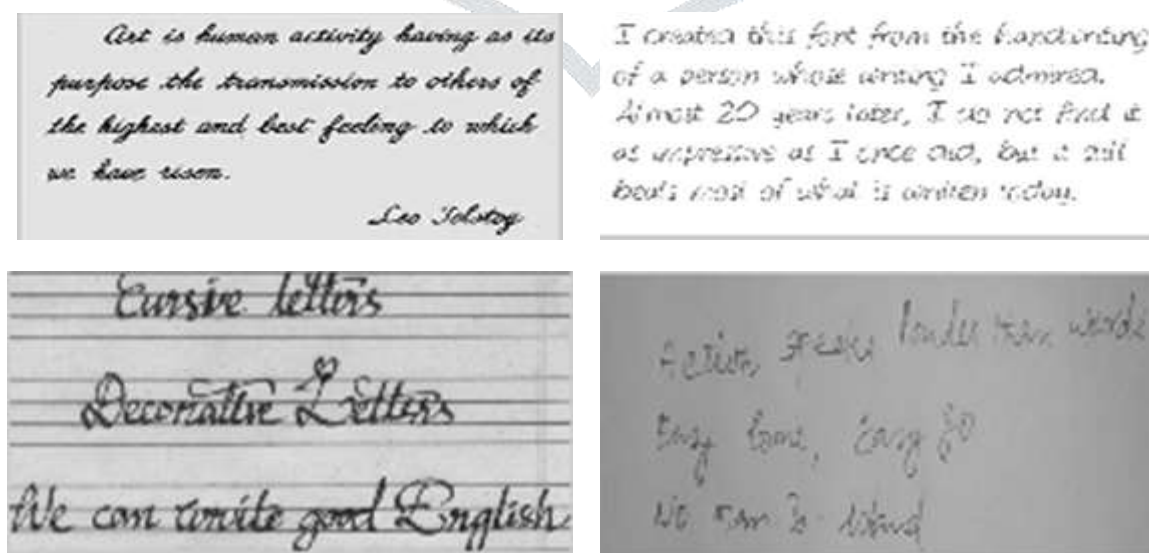 Art is human activity having as its
purpose the transmission to others of
the highest and best feeling to which
we have risen.
Leo Tolstoy
I created this font from the handwriting
of a person whose writing I admired.
Almost 20 years later, I do not find it
as impressive as I once did, but it still
beats most of what is written today.
Cursive letters
Decorative Letters
We can write good English
Action speaks louder than words
Easy come, easy go
No man is island